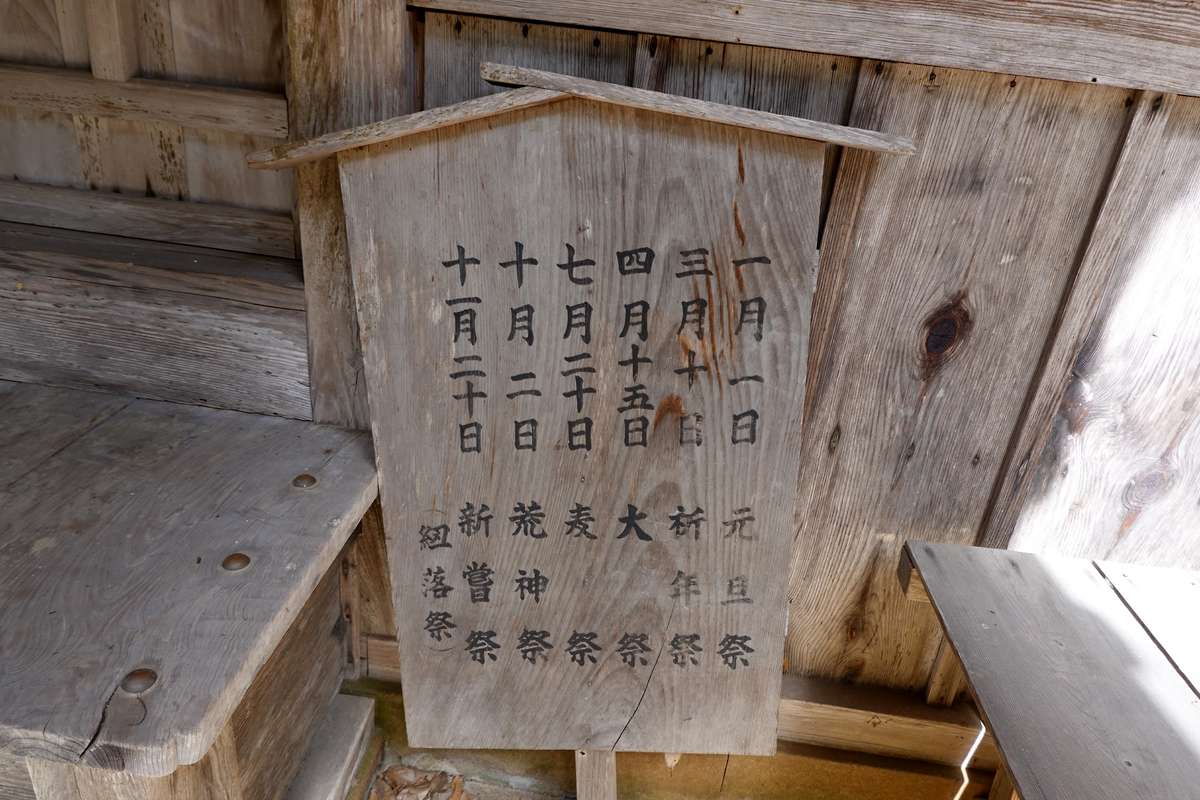 一月一日 元旦祭
三月十日 祈年祭
四月十五日 大祭
七月二十日 麦祭
十月二日 荒神祭
十一月二十日 新嘗祭
(紐落祭)